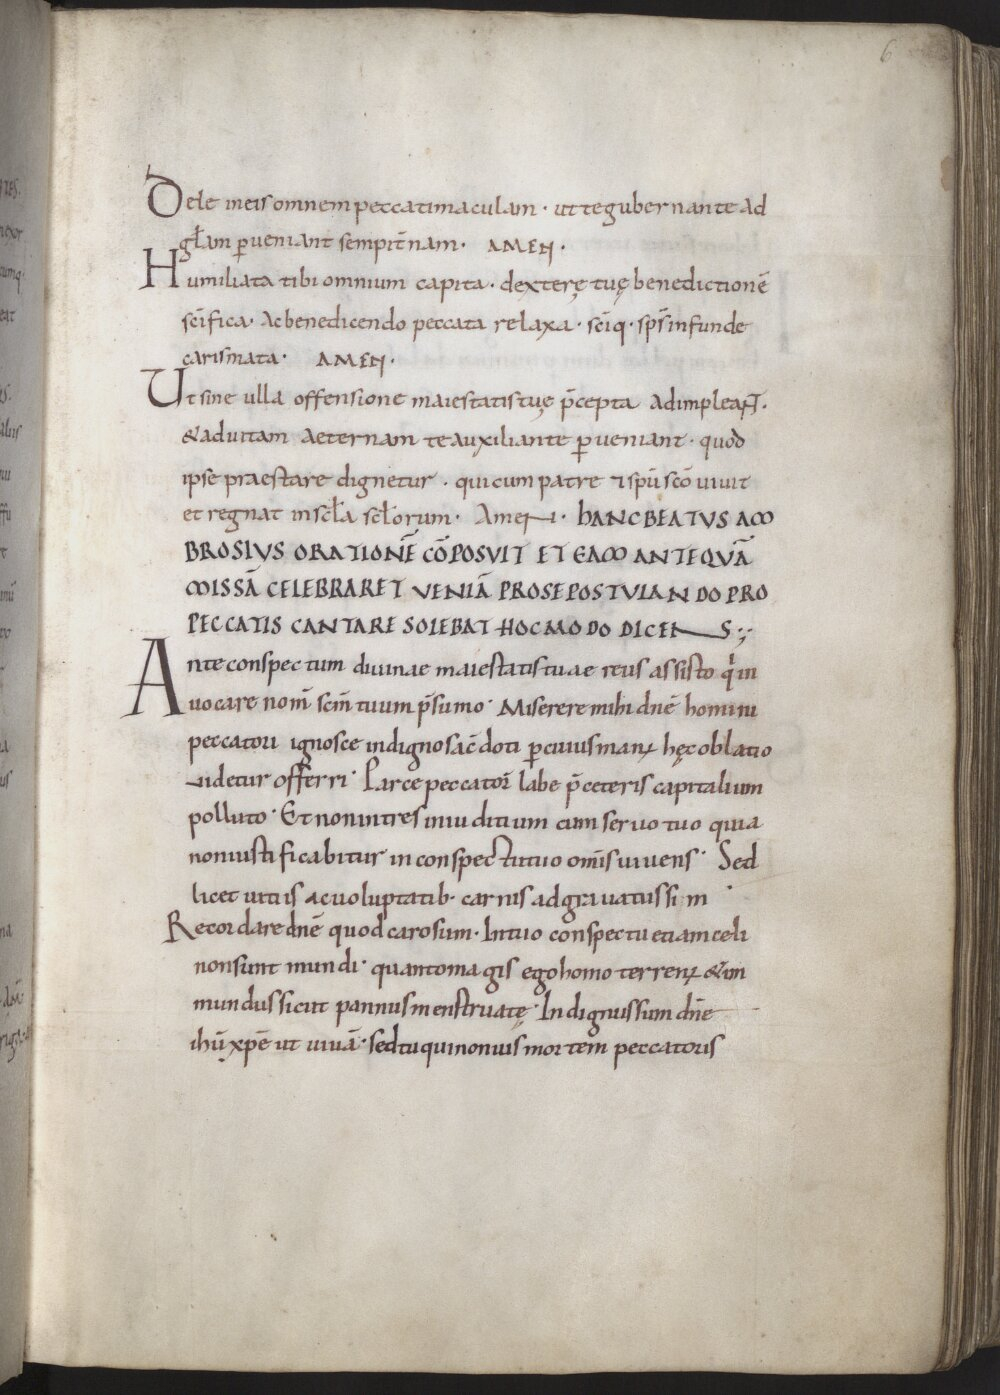 6
Dele ineis omnem peccati maculam · ut te gubernante ad
głam ꝑueniant sempit̄nam · AMEN ·
Humiliata tibi omnium capita · dexterę tuę benedictionē
sc̄ifica · Ac benedicendo peccata relaxa · sc̄iq · sp̄s infunde
carismata · AMEN ·
Ut sine ulla offensione maiestatis tuę p̄cepta adimpleant ·
& ad uitam aeternam te auxiliante ꝑueniant · quod
ipse praestare dignetur · qui cum patre ⁊ sp̄u sc̄o uiuit
et regnat in scła scłorum · Amen · HANC BEATUS AM
BROSIUS ORATIONĒ CŌPOSUIT ET EAM ANTEQUĀ
MISSĀ CELEBRARET VENIĀ PRO SE POSTULANDO PRO
PECCATIS CANTARE SOLEBAT HOC MODO DICENS :;
Ante conspectum diuinae maiestatis tuae reus assisto qͥ in
uocare nom̄ scm̄ tuum p̄sumo · Miserere mihi dn̄e homini
peccatori ignosce indigno sac̄doti ꝑ cuius manꝰ hęc oblatio
uidetur offerri · Parce peccatorū labe p̄ ceteris capitalium
polluto · Et non intres in iuditium cum seruo tuo quia
non iustificabitur in conspectu tuo om̄is uiuens · Sed
licet uitiis ac uoluptatib · carnis adgrauatus sim
Recordare dn̄e quod caro sum · In tuo conspectu etiam celi
non sunt mundi · quanto magis ego homo terrenꝰ & in
mundus sicut pannus menstruatę · Indignus sum dn̄e
ihū xp̄e ut uiuā · sed tu qui non uis mortem peccatoris